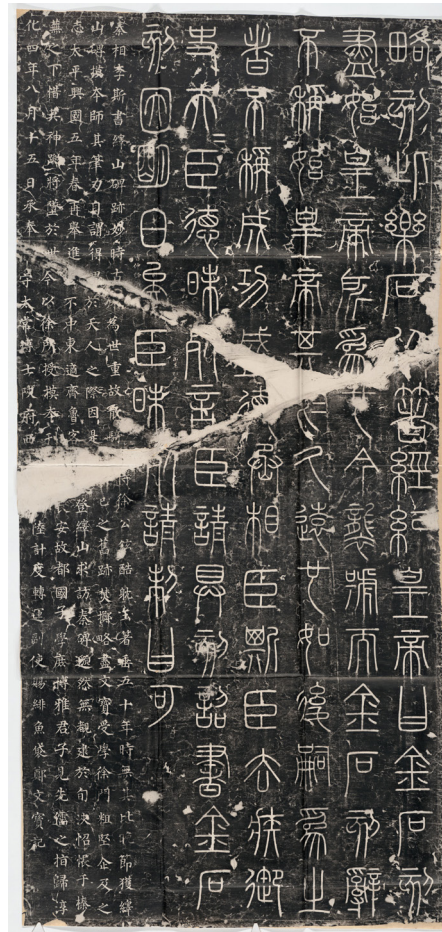 略刻此樂石以箸經紀皇帝曰金石刻
盡始皇帝所為也今襲號而金石刻辭
不稱始皇帝其于久遠也如後嗣為之
者不稱成功盛德丞相臣斯臣去疾御
史夫臣德昧死言臣請具刻詔書金石
刻因明白矣臣昧死請制曰可
秦相李斯書繹山碑跡妙時古為世重故散侍徐公鉉酷耽玉箸垂五十年時無其比晚節獲繹
山碑摸本師其筆力自謂得於天人之際因是己之舊跡焚擲略盡文寶受學徐門粗堅企及之
志太平興國五年春再舉進不中東適齊魯客登繹山求訪秦碑邈然無覩逮於旬浹怊悵于榛
蕪之下惜其神蹤將墜於世今以徐所授摸本刊長安故都國子學庶博雅君子見先儒之指歸淳
化四年八月十五日承奉守太常博士陝府西陸計度轉運副使賜緋魚袋鄭文寶記